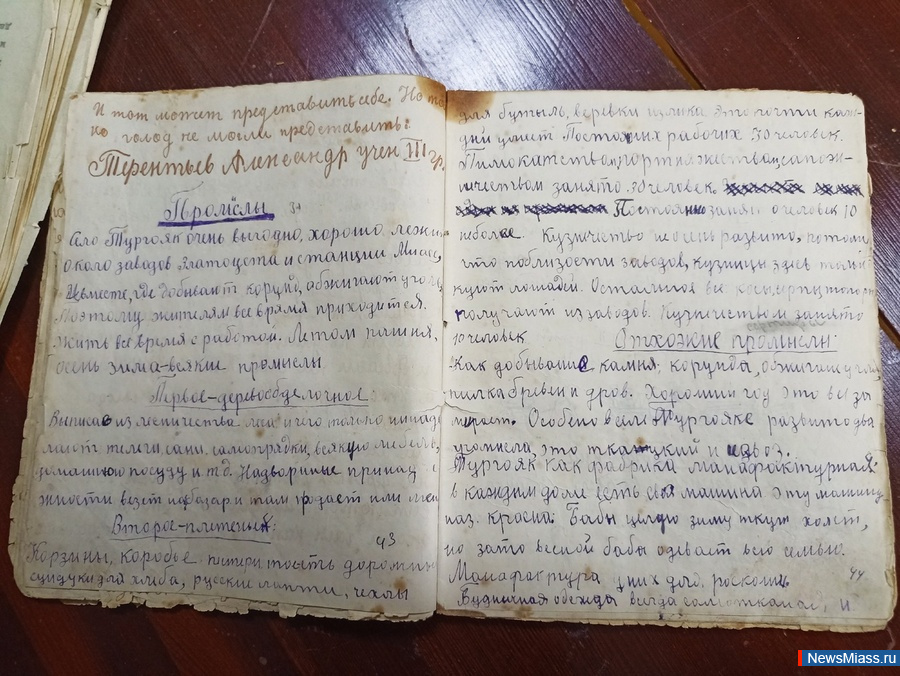 И тот может представить себе. Но то
ко голод не могли представить:
Терентьев Александр учен III гр.
Промыслы
Село Тургояк очень выгодно, хорошо лежи
около заводов Златоуста и станции Миасс,
вместе, где добывают корунд, обжигают уголь
Поэтому жителям все время приходится
жить все время с работой. Летом пашня,
осень зима-всякие промыслы.
Первое-деревообделочное:
из лесничества леса и чего только не
лают телеги, сани, самопрялки, всякую мебель,
домашнюю посуду и т.д. Надворные принад
жности везет на базар и там продает или
Второе-плетенья:
Корзины, коробье, то есть дорожные
сундуки для хлеба, русские лапти, чехлы
43
для бутыль, веревки и лыка. Это почти каж-
дый умеет. Постоянных рабочих 30 человек.
Пимокатством, портняжеством, сапож-
ничеством занято 30 человек.
Постоянно занят человек 10
неболее. Кузничество не очень развито, потому
что поблизости заводов, кузницы здесь только
куют лошадей. Остальное все косы, серпы, топоры
получают из заводов. Кузничеством занято
10 человек
Отхожие промыслы:
Как добывание камня, корунда, обжигание угля
пилка бревен и дров. Хороший год это все вы
мирает. Особено в селе Тургояке развито два
промысла, это ткацкий и извоз.
Тургояк как фабрика манафактурная:
в каждым доме есть своя машина эту машину
наз. кросна. Бабы целую зиму ткут холст,
но зато весной бабы одевает всю семью.
Манафактура у них для роскошь
Будничная одежда всегда самотканае, и
44
NewsMiass.ru